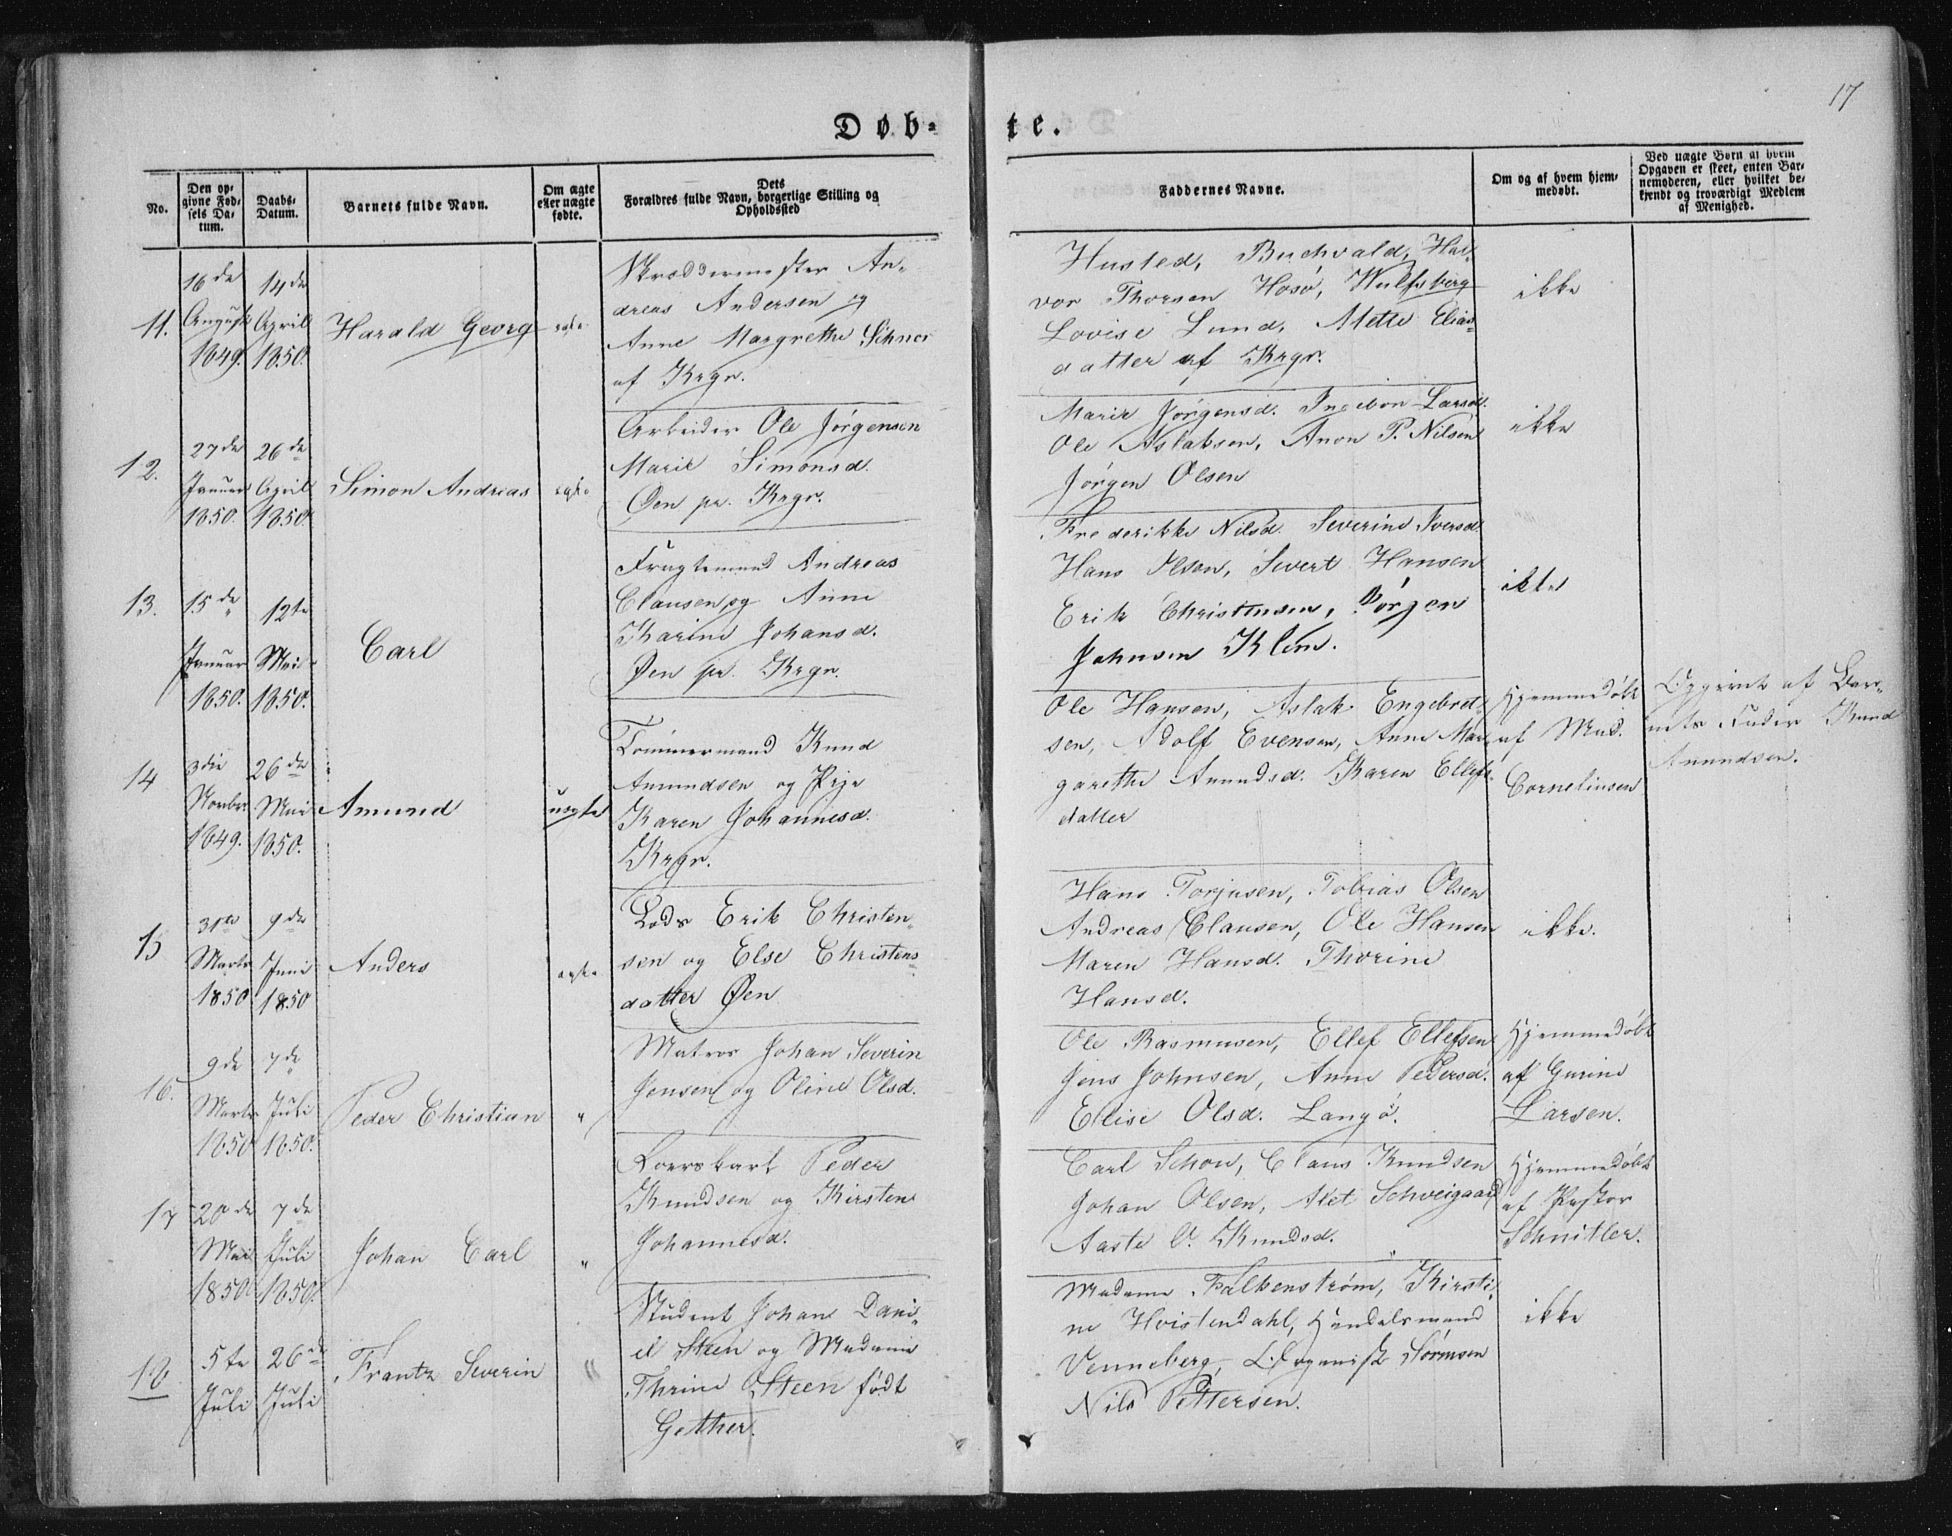 17
Døb- te.
No.
Den opgivne Fødsels Datum.
Daabs-Datum.
Barnets fulde Navn.
Om ægte eller uægte fødte.
Dets Forældres fulde Navn, borgerlige Stilling og Opholdssted
Faddernes Navne.
Om og af hvem hjemmedøbt.
Ved uægte Børn af hvem Opgaven er skeet, enten Barnemoderen, eller hvilket bekjendt og troværdigt Medlem af Menighed.
11.
16de August 1849.
14de April 1850.
Harald Georg
ægte
Skræddermester An-
dreas Andersen og
Anne Margrethe
af Krgr.
Husted, Buchvald, Hal-
vor Thorsen Hosø, Wulfsberg
Lovise Lund, Mette Elias-
datter af Krgr.
ikke
12.
27de Januar 1850.
26de April 1850.
Simon Andreas
ægte
Arbeider Ole Jørgensen
Marie Simonsd.
Øen pr. Krgr.
Marie Jørgensd. Ingebor Larsd.
Ole Aslaksen, Anon P. Nilsen
Jørgen Olsen
ikke
13.
15de Januar 1850.
12te Mai 1850.
Carl
Fragtemand Andreas
Clausen og Anne
Karine Johansd.
Øen pr. Krgr.
Frederikke Nilsd. Severine Iversd.
Hans Olsen, Sivert Hansen
Erik Christensen, Jørgen
Johnsen Klem.
ikke
14
3die Novbr 1849.
26de Mai 1850.
Amund
uægte
Tømmermand Knud
Amundsen og Pige
Karen Johannesd.
Krgr.
Ole Hansen, Aslak Engebret-
sen, Adolf Evensen, Anne Mar-
garethe Amundsd. Karen Ellefs-
datter
Hjemmedøbt
af Mad.
Cornelinsen
Opgivet af Bar-
nets Fader Knud
Amundsen.
15
31te Marts 1850
9de Juni 1850
Anders
ægte
Lods Erik Christen-
sen og Else Christens-
datter Øen
Hans Torjusen, Tobias Olsen
Andreas Clausen, Ole Hansen
Maren Hansd. Thorine
Hansd.
ikke.
16.
9de Marts 1850
7de Juli 1850.
Peder Christian
"
Matros Johan Severin
Jensen og Oline Olsd.
Ole Rasmusen, Ellef Ellefsen
Jens Johnsen, Anne Pedersd.
Elise Olsd. Langø.
Hjemmedøbt
af Gurine
Larsen.
17
20de Mai 1850
7de Juli 1850.
Johan Carl
"
Peder
Knudsen og Kirstene
Johannesd.
Carl Schou, Claus Knudsen
Johan Olsen, Alet Schveigaard
Aaste O. Knudsd.
Hjemmedøbt
af Pastor
Schnitler.
18
5te Juli
26de Juli
Frantz Severin
"
Student Johan Dani-
el Steen og Madame
Thrine Steen født
Gether.
Madame Falkenstrøm, Kirsti-
ne Hvistendahl, Handelsmand
Venneberg, Organist Sørensen
Nils Pettersen.
ikke